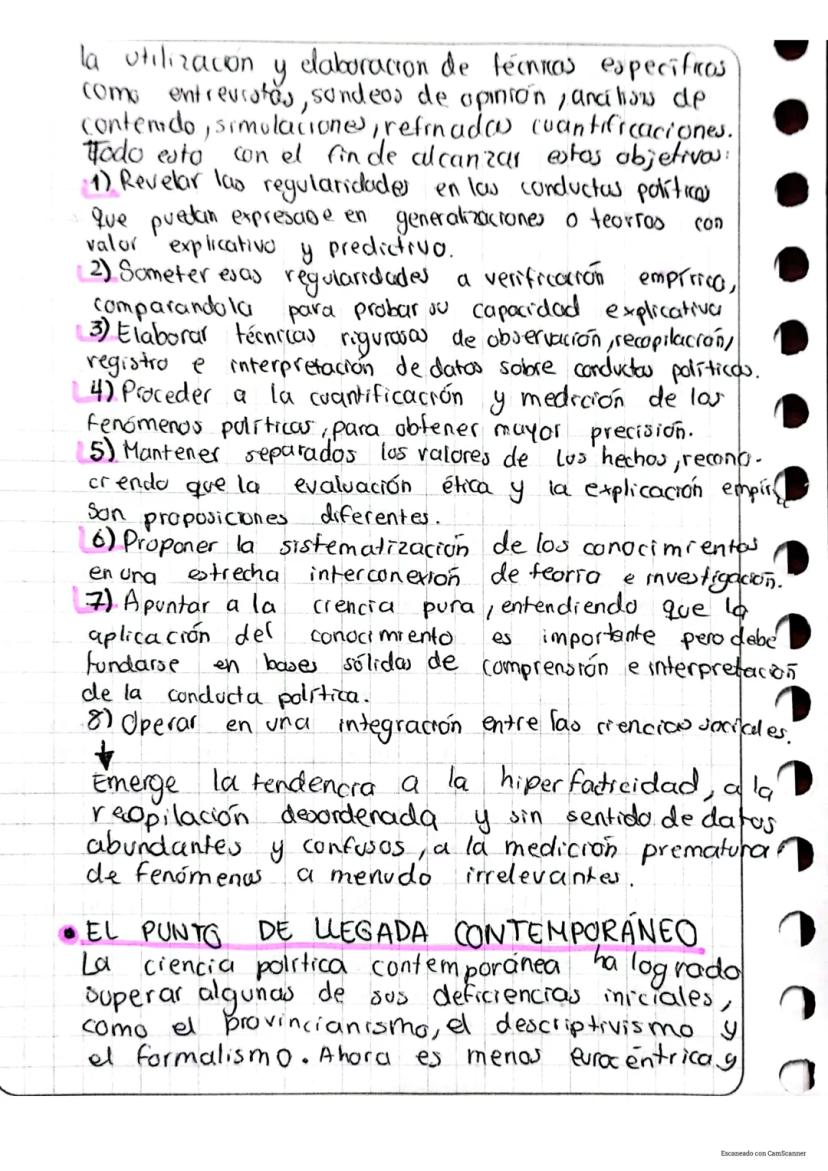 la utilización y elaboración de técnicas específicas
como entrevistas, sondeos de opinión, análisis de
contenido, simulaciones, refinadas cuantificaciones.
Todo esto con el fin de alcanzar estos objetivos:
1) Revelar las regularidades en las conductas políticas
que puedan expresarse en generalizaciones o teorías con
valor explicativo y predictivo.
2) Someter esas regularidades a verificación empírica,
comparandola para probar su capacidad explicativa
3) Elaborar técnicas rigurosas de observación, recopilación,
registro e interpretación de datos sobre conductas políticas.
4) Proceder a la cuantificación y medición de los
fenómenos políticos, para obtener mayor precisión.
5) Mantener separados los valores de los hechos, recono-
ciendo que la evaluación ética y la explicación empíri
son proposiciones diferentes.
6) Proponer la sistematización de los conocimientos
en una estrecha interconexión de teoría e investigación.
7) Apuntar a la ciencia pura, entendiendo que la
aplicación del conocimiento es importante pero debe
fundarse en bases sólidas de comprensión e interpretación
de la conducta política.
8) Operar en una integración entre las ciencias sociales.
↓
Emerge la tendencia a la hiperfacticidad, a la
recopilación desordenada y sin sentido de datos
abundantes y confusos, a la medición prematura
de fenómenos a menudo irrelevantes.
• EL PUNTO DE LLEGADA CONTEMPORÁNEO
La ciencia política contemporánea ha logrado
superar algunas de sus deficiencias iniciales,
como el provincianismo, el descriptivismo y
el formalismo. Ahora es menos eurocéntrica y
Escaneado con CamScanner